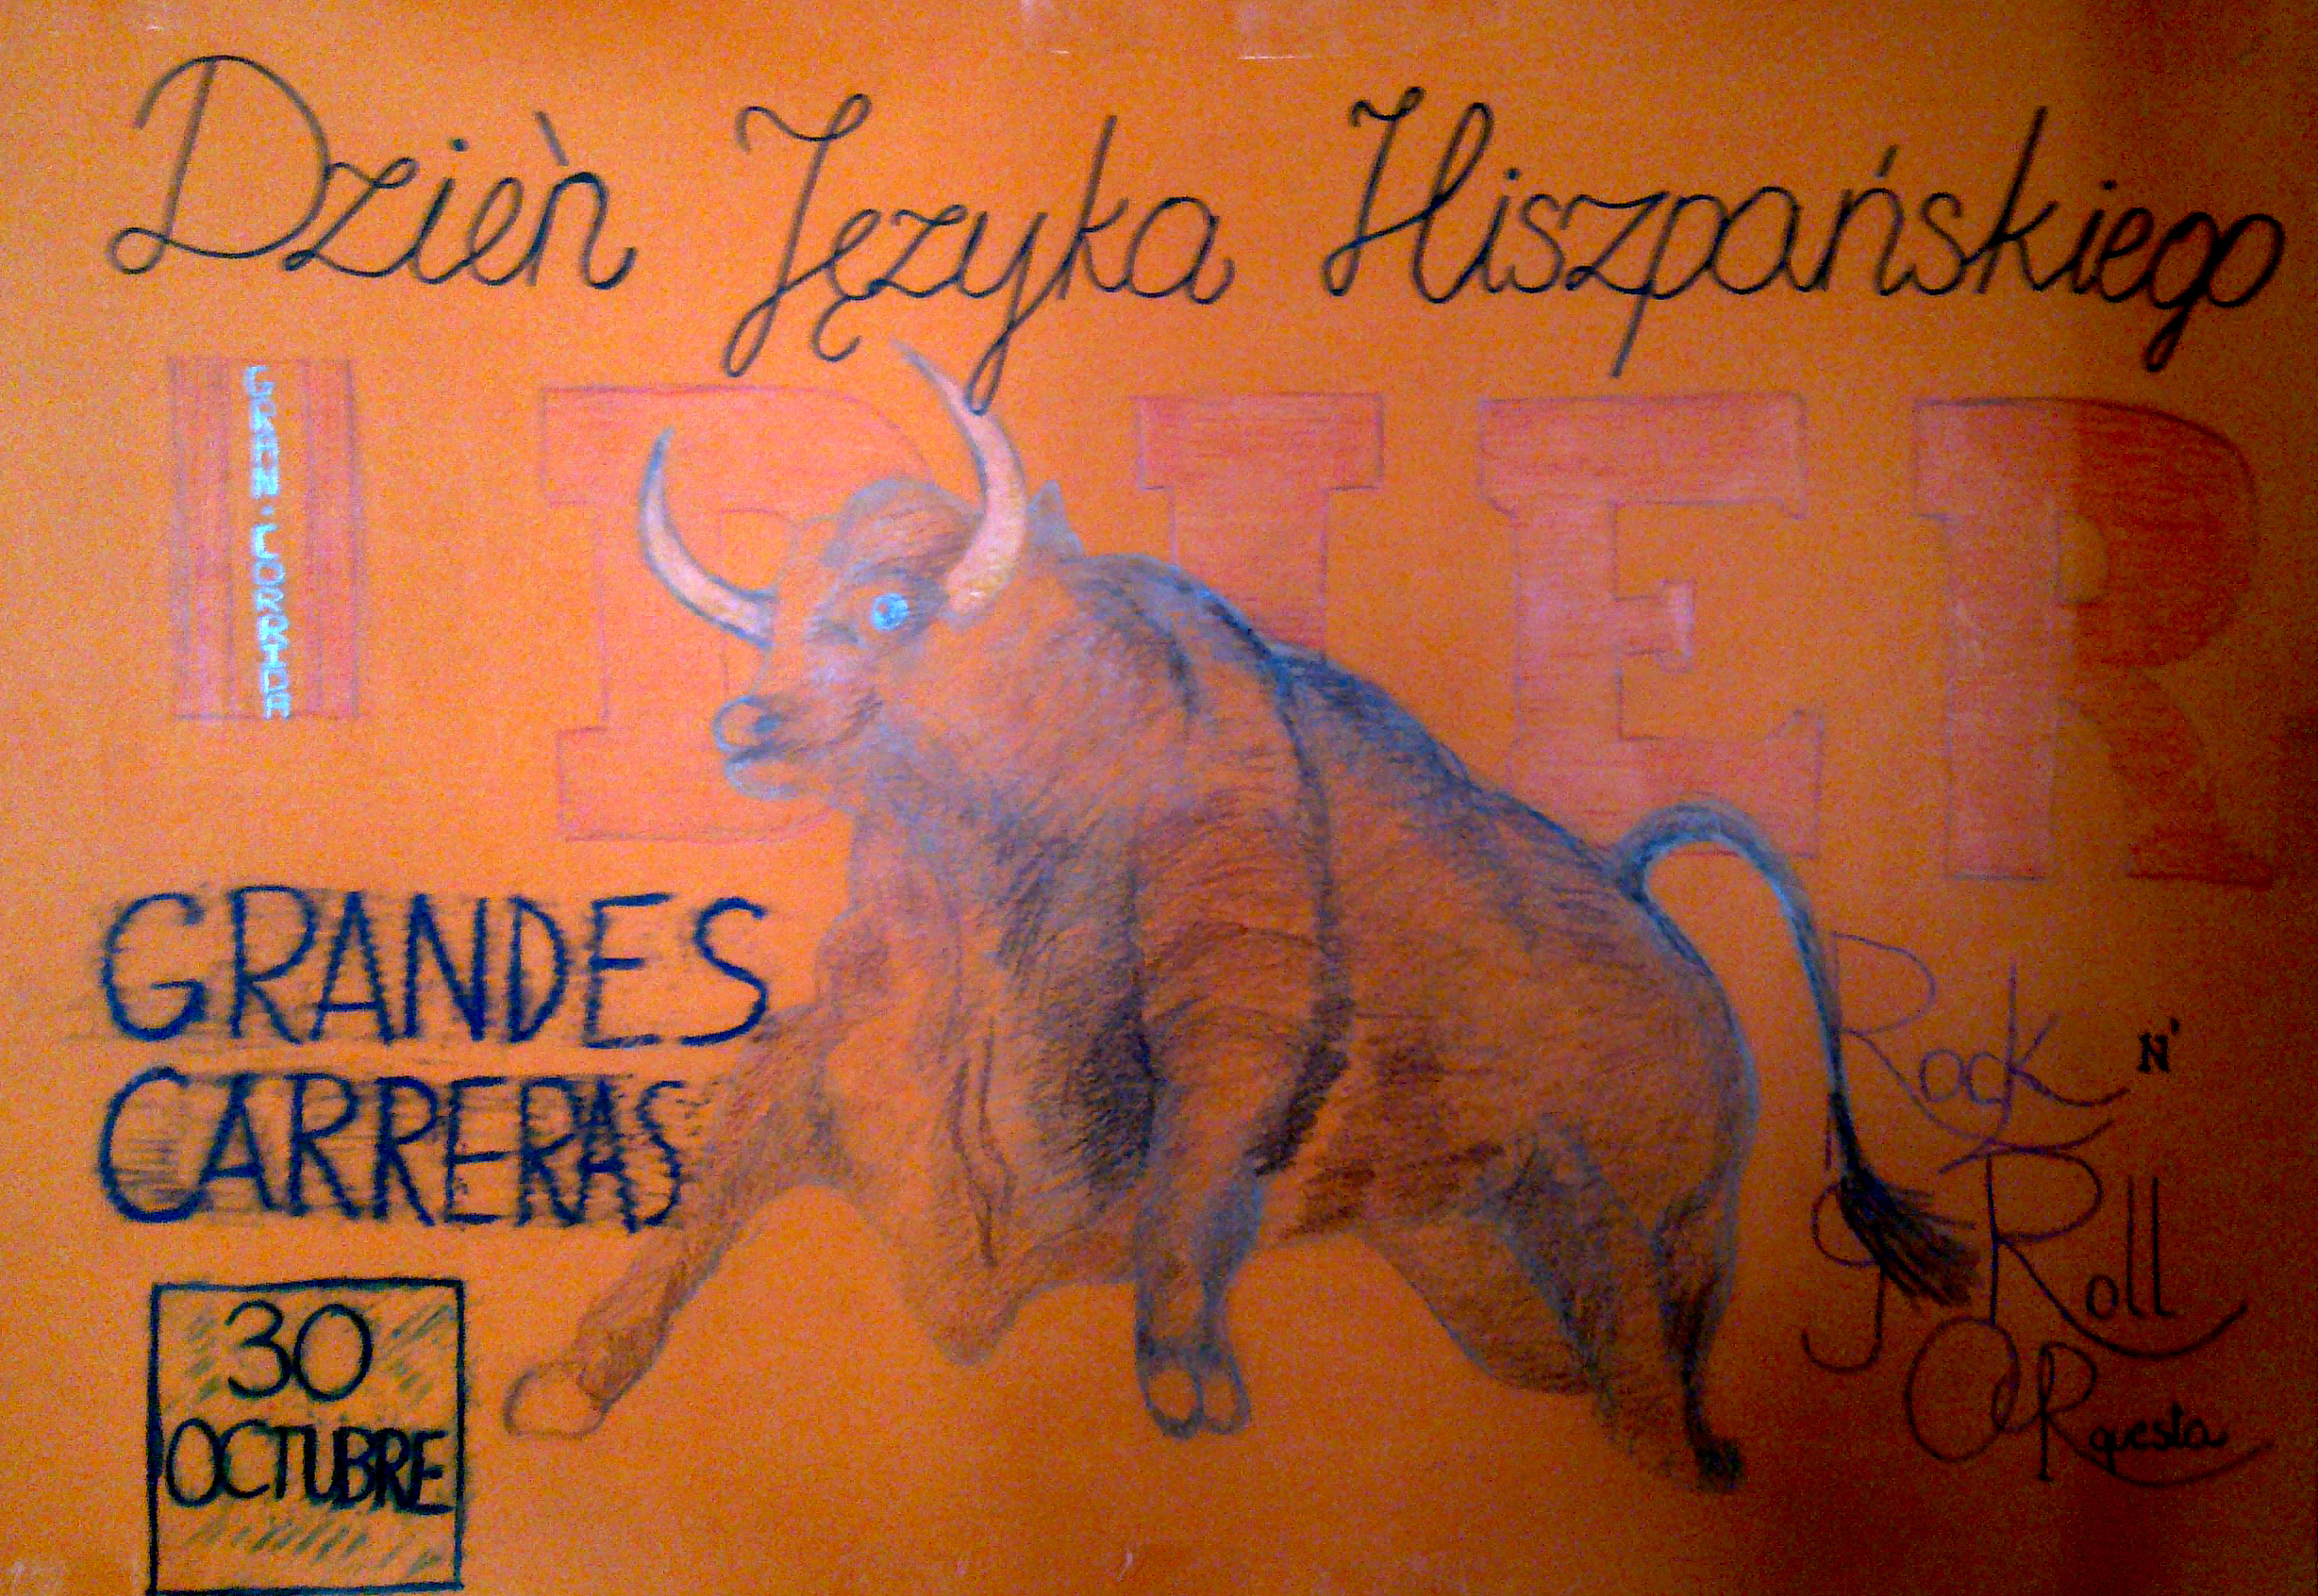 Dzień Języka Hiszpańskiego
GRAN·CORRIDA
GRANDES
CARRERAS
30
OCTUBRE
Rock N'
Roll
ORquesta